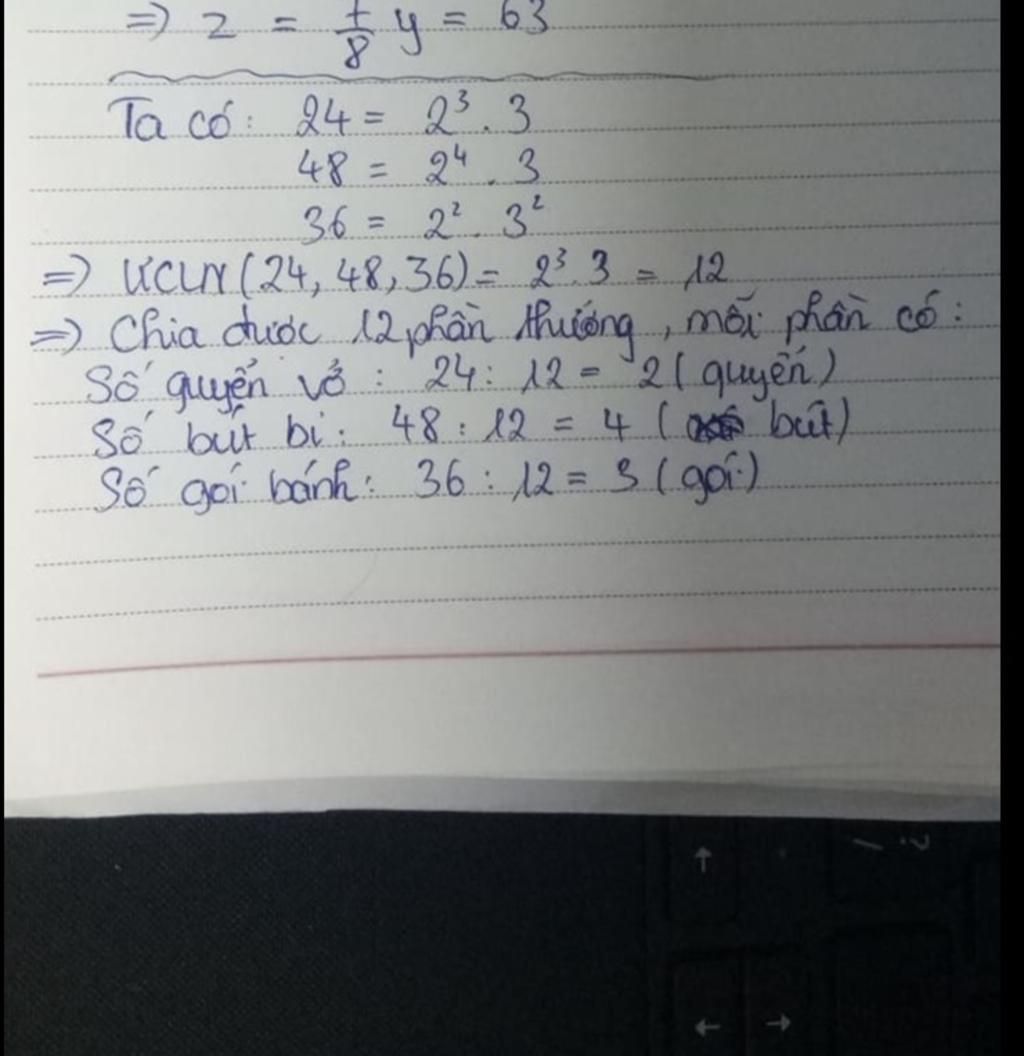 =) z = 7/8 y = 63
Ta có: 24 = 2³. 3
48 = 2⁴. 3
36 = 2². 3²
=) ƯCLN(24, 48, 36) = 2³. 3 = 12
=) Chia được 12 phần thưởng, mỗi phần có:
Số quyển vở : 24 : 12 = 2 ( quyển)
Số bút bi : 48 : 12 = 4 ( bút)
Số gói bánh : 36 : 12 = 3 ( gói)